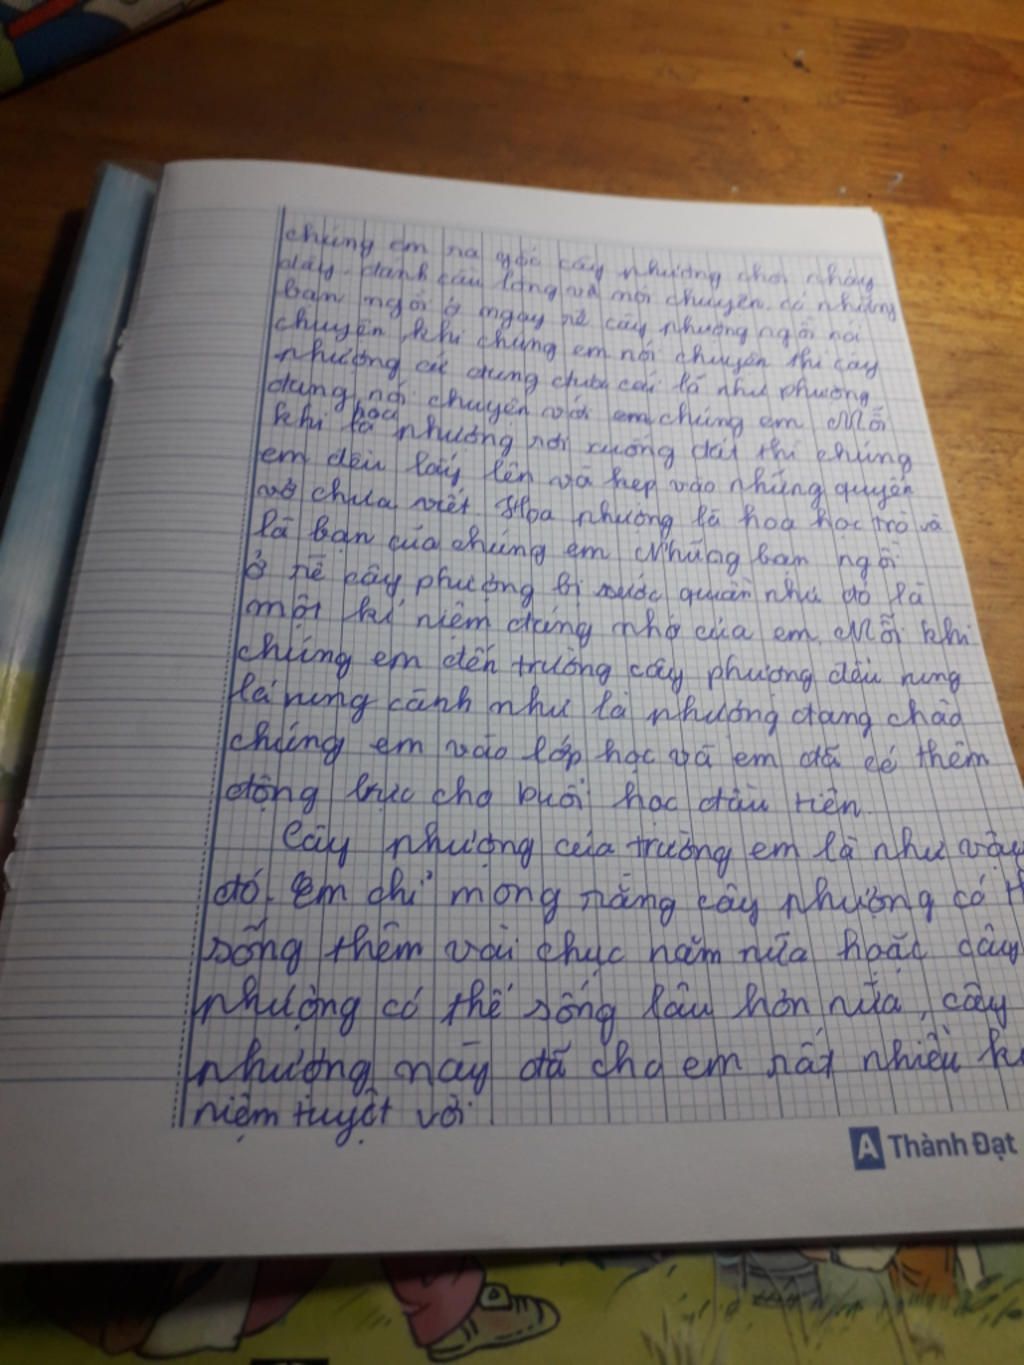 chúng em ra gốc cây phượng chơi nhảy
dây, đánh cầu lông và nói chuyện. có những
bạn ngồi ở ngay rễ cây phượng ngồi nói
chuyện, khi chúng em nói chuyện thì cây
phượng cứ dung cái lá như phượng
đang nói chuyện với em chúng em Mỗi
khi là hoa phượng rơi xuống đất thì chúng
em đều lấy lên và kẹp vào những quyển
vở chưa viết. Hoa phượng là hoa học trò và
là bạn của chúng em Những bạn ngồi
ở rễ cây phượng bị xước quần như đó là
một kỉ niệm đáng nhớ của em. Mỗi khi
chúng em đến trường cây phượng đều rung
lá rung cành như là phượng đang chào
chúng em vào lớp học và em đã có thêm
động lực cho buổi học đầu tiên.
Cây phượng của trường em là như vậy
đó. Em chỉ mong rằng cây phượng có
sống thêm vài chục năm nữa hoặc cây
phượng có thể sống lâu hơn nữa, cây
phượng này đã cho em rất nhiều
niệm tuyệt vời
A Thành Đạt